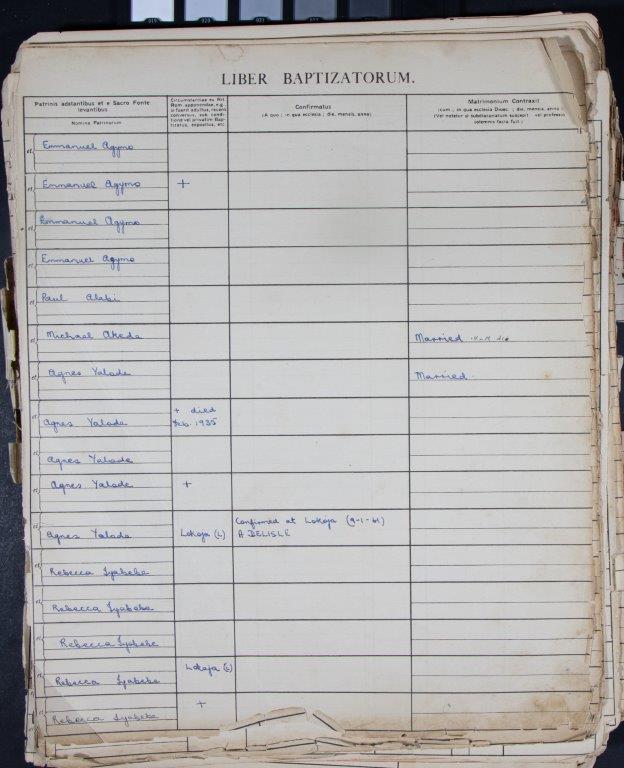 LIBER BAPTIZATORUM.
Patrinis adstantibus et e Sacro Fonte
levantibus
Nomina Patrinorum
Circumstantiae ex Rit.
Rom. apponendae, e.g.,
si fuerit adultus, recens
conversus, sub condi-
tione vel privatim Bap-
tizatus, expositus, etc.
Confirmatus
(A quo; in qua ecclesia; die, mensis, anno)
Matrimonium Contraxit
(cum; in qua ecclesia Dioec.; die, mensis, anno
(Vel notetur si subdiaconatum suscepit vel professio
solemnis facta fuit.)
et Emmanuel Agymo
et Emmanuel Agymo +
et Emmanuel Agymo
et Emmanuel Agymo
et Paul Alabi
et Michael Akeda Married
et Agnes Yalade Married
+ died
et Agnes Yalade Feb. 1935
et Agnes Yalade
et Agnes Yalade +
Confirmed at Lokoja (9-1-61)
et Agnes Yalade Lokoja (L) A BELISLE
et Rebecca Iyabebe
et Rebecca Iyabebe
et Rebecca Iyabebe
Lokoja (L)
et Rebecca Iyabebe
+
et Rebecca Iyabebe